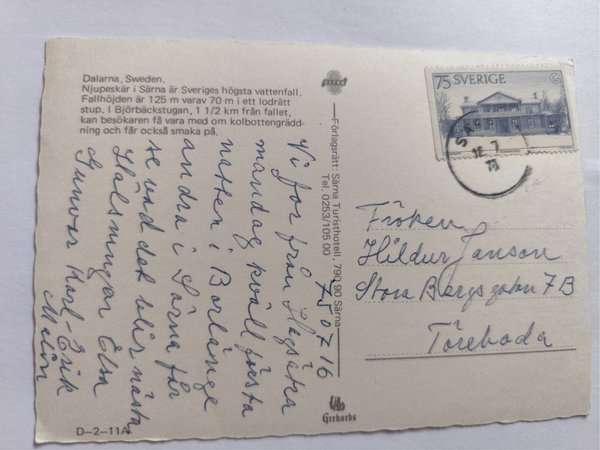 Dalarna, Sweden.
Njupeskär i Särna är Sveriges högsta vattenfall.
Fallhöjden är 125 m varav 70 m i ett lodrätt
stup. I Björbäckstugan, 1 1/2 km från fallet,
kan besökaren få vara med om kolbottengrädd-
ning och får också smaka på.
75 07 16
Vi for från Hägsätra
måndag kväll första
natten i Borlänge
andra i Särna får
se vad det blir nästa
Hälsningar Elsa
Gunvor Karl-Erik
Malin
D-2-11A
ULTRA
Förlagsrätt: Särna Turisthotell, 790 90 Särna
Tel. 0253/105 00
Gerhards
75 SVERIGE
16 7
75
Fröken
Hildur Janson
Stora Bergsgatan 7B
Töreboda